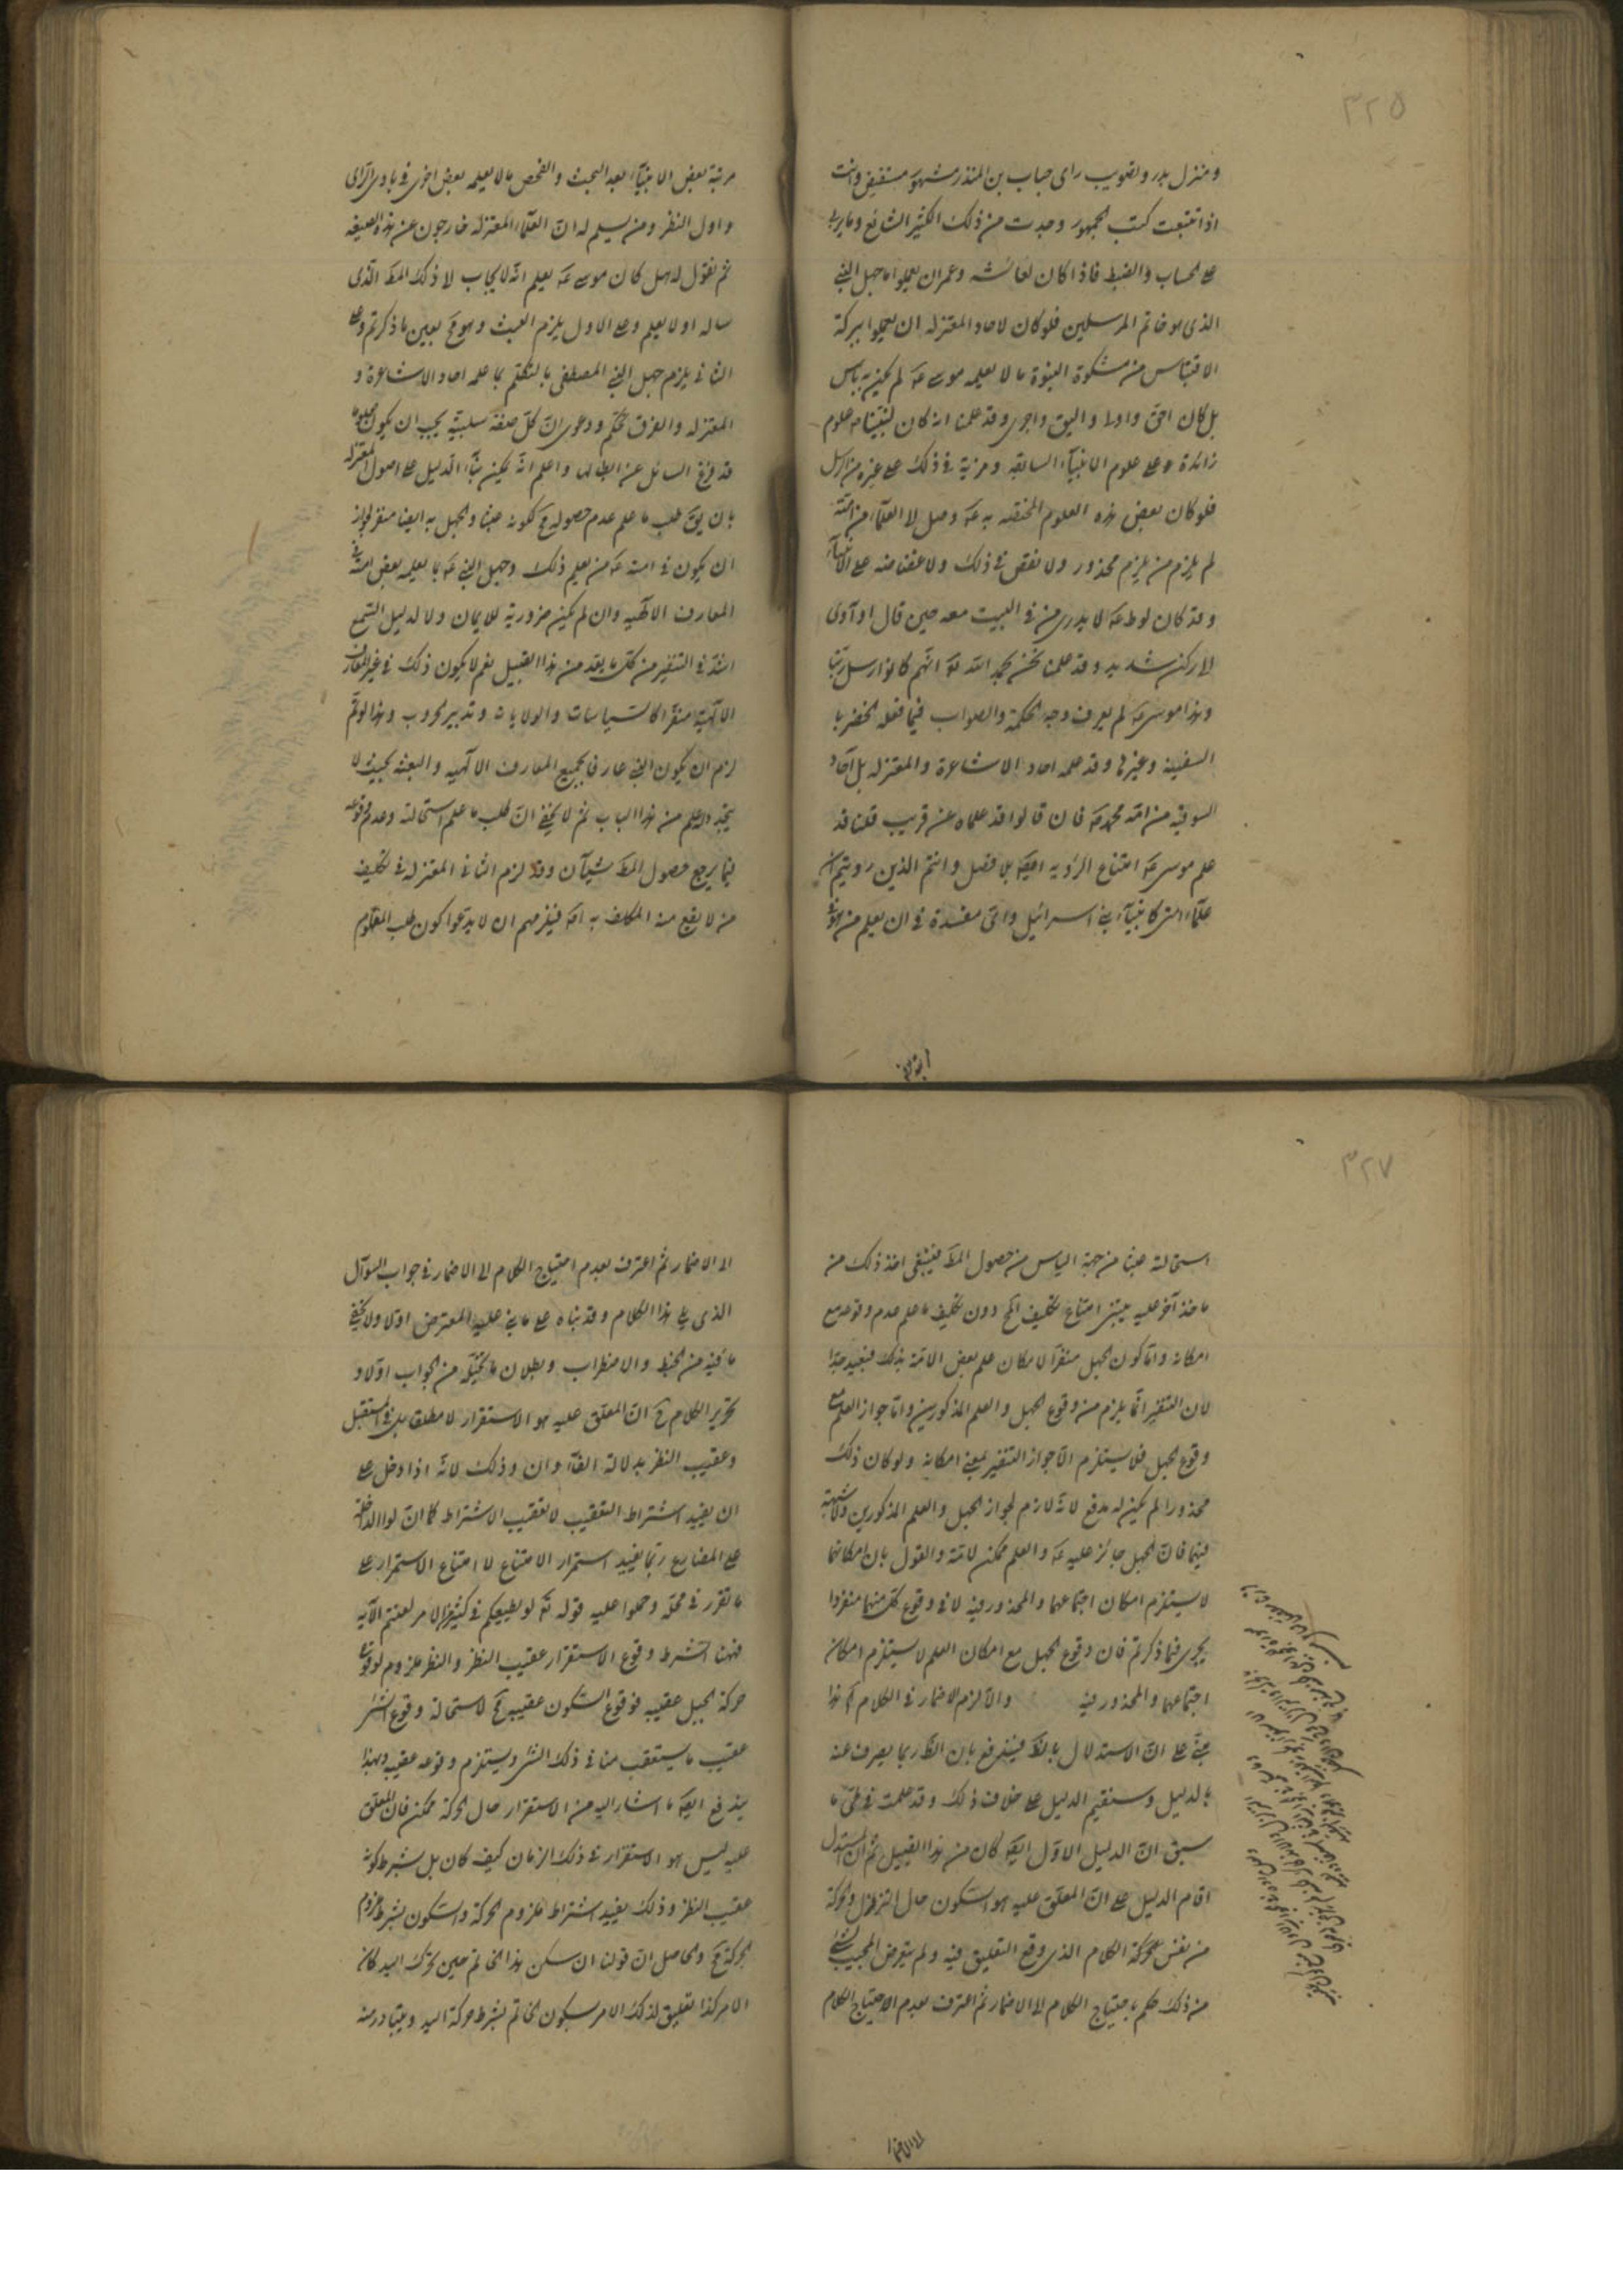 ٣٢٥
ومنزل بدر وتصويب رای حباب بن المنذر مشهور مستفيض وانت
اذا تتبعت كتب الجمهور وجدت من ذلك الكثير الشائع وما يربى
على الحساب والضبط فاذا كان لعائشه وعمر ان يعلموا ما جهل النبى
الذى هو خاتم المرسلين فلو كان لاحاد المعتزله ان يعلموا ببركة
الاقتباس من مشكوة النبوة ما لا يعلمه موسى عه لم يكن به بأس
بل كان احق واولى واليق واحرى وقد علمنا انه كان لنبينا ص علوم
زائدة على علوم الانبيآء السابقه ومزية فى ذلك على غيره من الرسل
فلو كان بعض هذه العلوم المختصه به عه وصل الى العلمآء من امته
لم يلزم من يلزم محذور ولا نقص فى ذلك ولا غضاضه على الانبيآء
وقد كان لوط عه لا يدرى من فى البيت معه حين قال او آوى
الى ركن شديد وقد علمنا نحن بحمد الله تع انهم كانوا رسل ربنا
وهذا موسى عه لم يعرف وجه الحكمة والصواب فيما فعله الخضر با
السفينه وغيرها وقد علمه احاد الاشاعرة والمعتزله بل آحاد
السوقيه من امة محمد ص فان قالوا قد علماه عن قريب قلنا قد
علم موسى عه امتناع الرؤيه ايضا بلا فصل وانتم الذين رويتم ان
علمآء امتى كانبيآء بنى اسرائيل واى مفسدة فى ان يعلم من هو فى
مرتبة بعض الانبيآء بعد البحث والفحص ما لا يعلمه بعض اخرى فى بادى الراى
واول النظر ومن يسلم له ان العلمآء المعتزله خارجون عن هذه الصيغه
ثم نقول له هل كان موسى عه يعلم انه لا يجاب الى ذلك المط الذى
ساله اولا يعلم وعلى الاول يلزم العبث وهو مح بعين ما ذكرتم وعلى
الثانى يلزم جهل النبى المصطفى بالتكلم بما علمه احاد الاشاعرة و
المعتزله والفرق تحكم ودعوى ان كل صفة سلبية يجب ان يكون معلوما
قد فرغ السائل عن ابطالها واعلم انه يمكن بنآء الدليل على اصول المعتزله
بان يق طلب ما علم عدم حصوله مح لكونه عبثا والجهل به ايضا منفر لجواز
ان يكون فى امته عه من يعلم ذلك وجهل النبى عه بما يعلمه بعض امته فى
المعارف الالهيه وان لم يكن ضرورية للايمان ولا لدليل السمع
اشد فى التنفير من كل ما يعد من هذا القبيل نعم لا يكون ذلك فى غير المعارف
الالهية منفرا كالسياسات والولايات وتدبير الحروب وهذا لو تم
لزم ان يكون النبى عارفا بجميع المعارف الالهيه والبعثه بحيث لا
يتجدد له علم من هذا الباب ثم لا يخفى ان طلب ما علم استحالته وعدم وقوعه
فيما يرجع حصول المط شيآن وقد لزم الثانى المعتزله فى تكليف
من لا يقع منه المكلف به اصلا فيلزمهم ان لا يدعوا كون طلب المعلوم
استحال
٣٢٧
استحالته عبثا من جهة الياس من حصول المط فينبغى اخذ ذلك من
ماخذ آخر عليه يبتنى امتناع تكليف المح دون تكليف ما علم عدم وقوعه مع
امكانه واما كون الجهل منفرا لامكان علم بعض الامة بذلك فبعيد جدا
لان التنفير انما يلزم من وقوع الجهل والعلم المذكورين واما جواز العلم مع
وقوع الجهل فلا يستلزم الا جواز التنفير بمعنى امكانه ولو كان ذلك
محذورا لم يكن له مدفع لانه لازم لجواز الجهل والعلم المذكورين ولا شبهة
فيهما فان الجهل جائز عليه عه والعلم ممكن لامته والقول بان امكانهما
لا يستلزم امكان اجتماعهما والمحذور فيه لا فى وقوع كل منهما منفردا
يجرى فيما ذكرتم فان وقوع الجهل مع امكان العلم لا يستلزم امكان
اجتماعهما والمحذور فيه والا لزم الاضمار فى الكلام اه هذا
مبنى على ان الاستدلال بالظ فيندفع بان الظ ربما يصرف عنه
بالدليل وسنقيم الدليل على خلاف ذلك وقد علمت فى طى ما
سبق ان الدليل الاول ايضا كان من هذا القبيل ثم ان المستدل
اقام الدليل على ان المعلق عليه هو السكون حال التزلزل والحركة
من نفس محركة الكلام الذى وقع التعليق فيه ولم يتعرض المجيب لشئ
من ذلك حكم باحتياج الكلام الى الاضمار ثم اعترف بعدم الاحتياج الكلام
الى الاضمار ثم اعترف بعدم احتياج الكلام الى الاضمار فى جواب السوآل
الذى يلى هذا الكلام وقد بناه على ما بنى عليه المعترض اولا ولا يخفى
ما فيه من الخبط والاضطراب وبطلان ما تخيله من الجواب اولا و
تحرير الكلام ح ان المعلق عليه هو الاستقرار لا مطلقا بل فى المستقبل
وعقيب النظر بدلالة الفآء وان وذلك لانه اذا دخل على
ان يفيد اشتراط التعقيب لا تعقيب الاشتراط كما ان لو الداخلة
على المضارع ربما يفيد استمرار الامتناع لا امتناع الاستمرار على
ما تقرر فى محله وحملوا عليه قوله تع لو يطيعكم فى كثير من الامر لعنتم الآيه
فههنا الشرط وقوع الاستقرار عقيب النظر والنظر ملزوم لوقوع
حركة الجبل عقيبه فوقوع السكون عقيبه مح لاستحالة وقوع الشئ
عقيب ما يستعقب منافى ذلك الشئ ويستلزم وقوعه عقيبه وبهذا
يندفع ايضا ما اشار اليه من الاستقرار حال الحركة ممكن فان المعلق
عليه ليس هو الاستقرار فى ذلك الزمان كيف كان بل بشرط كونه
عقيب النظر وذلك يفيد اشتراط ملزوم الحركة والسكون بشرط ملزوم
الحركة مح والحاصل ان قولنا ان سكن هذا الخاتم حين تحرك اليد كان
الامر كذا تعليق لذلك الامر بسكون الخاتم بشرط حركة اليد ويتبادر منه
الى الاضمار